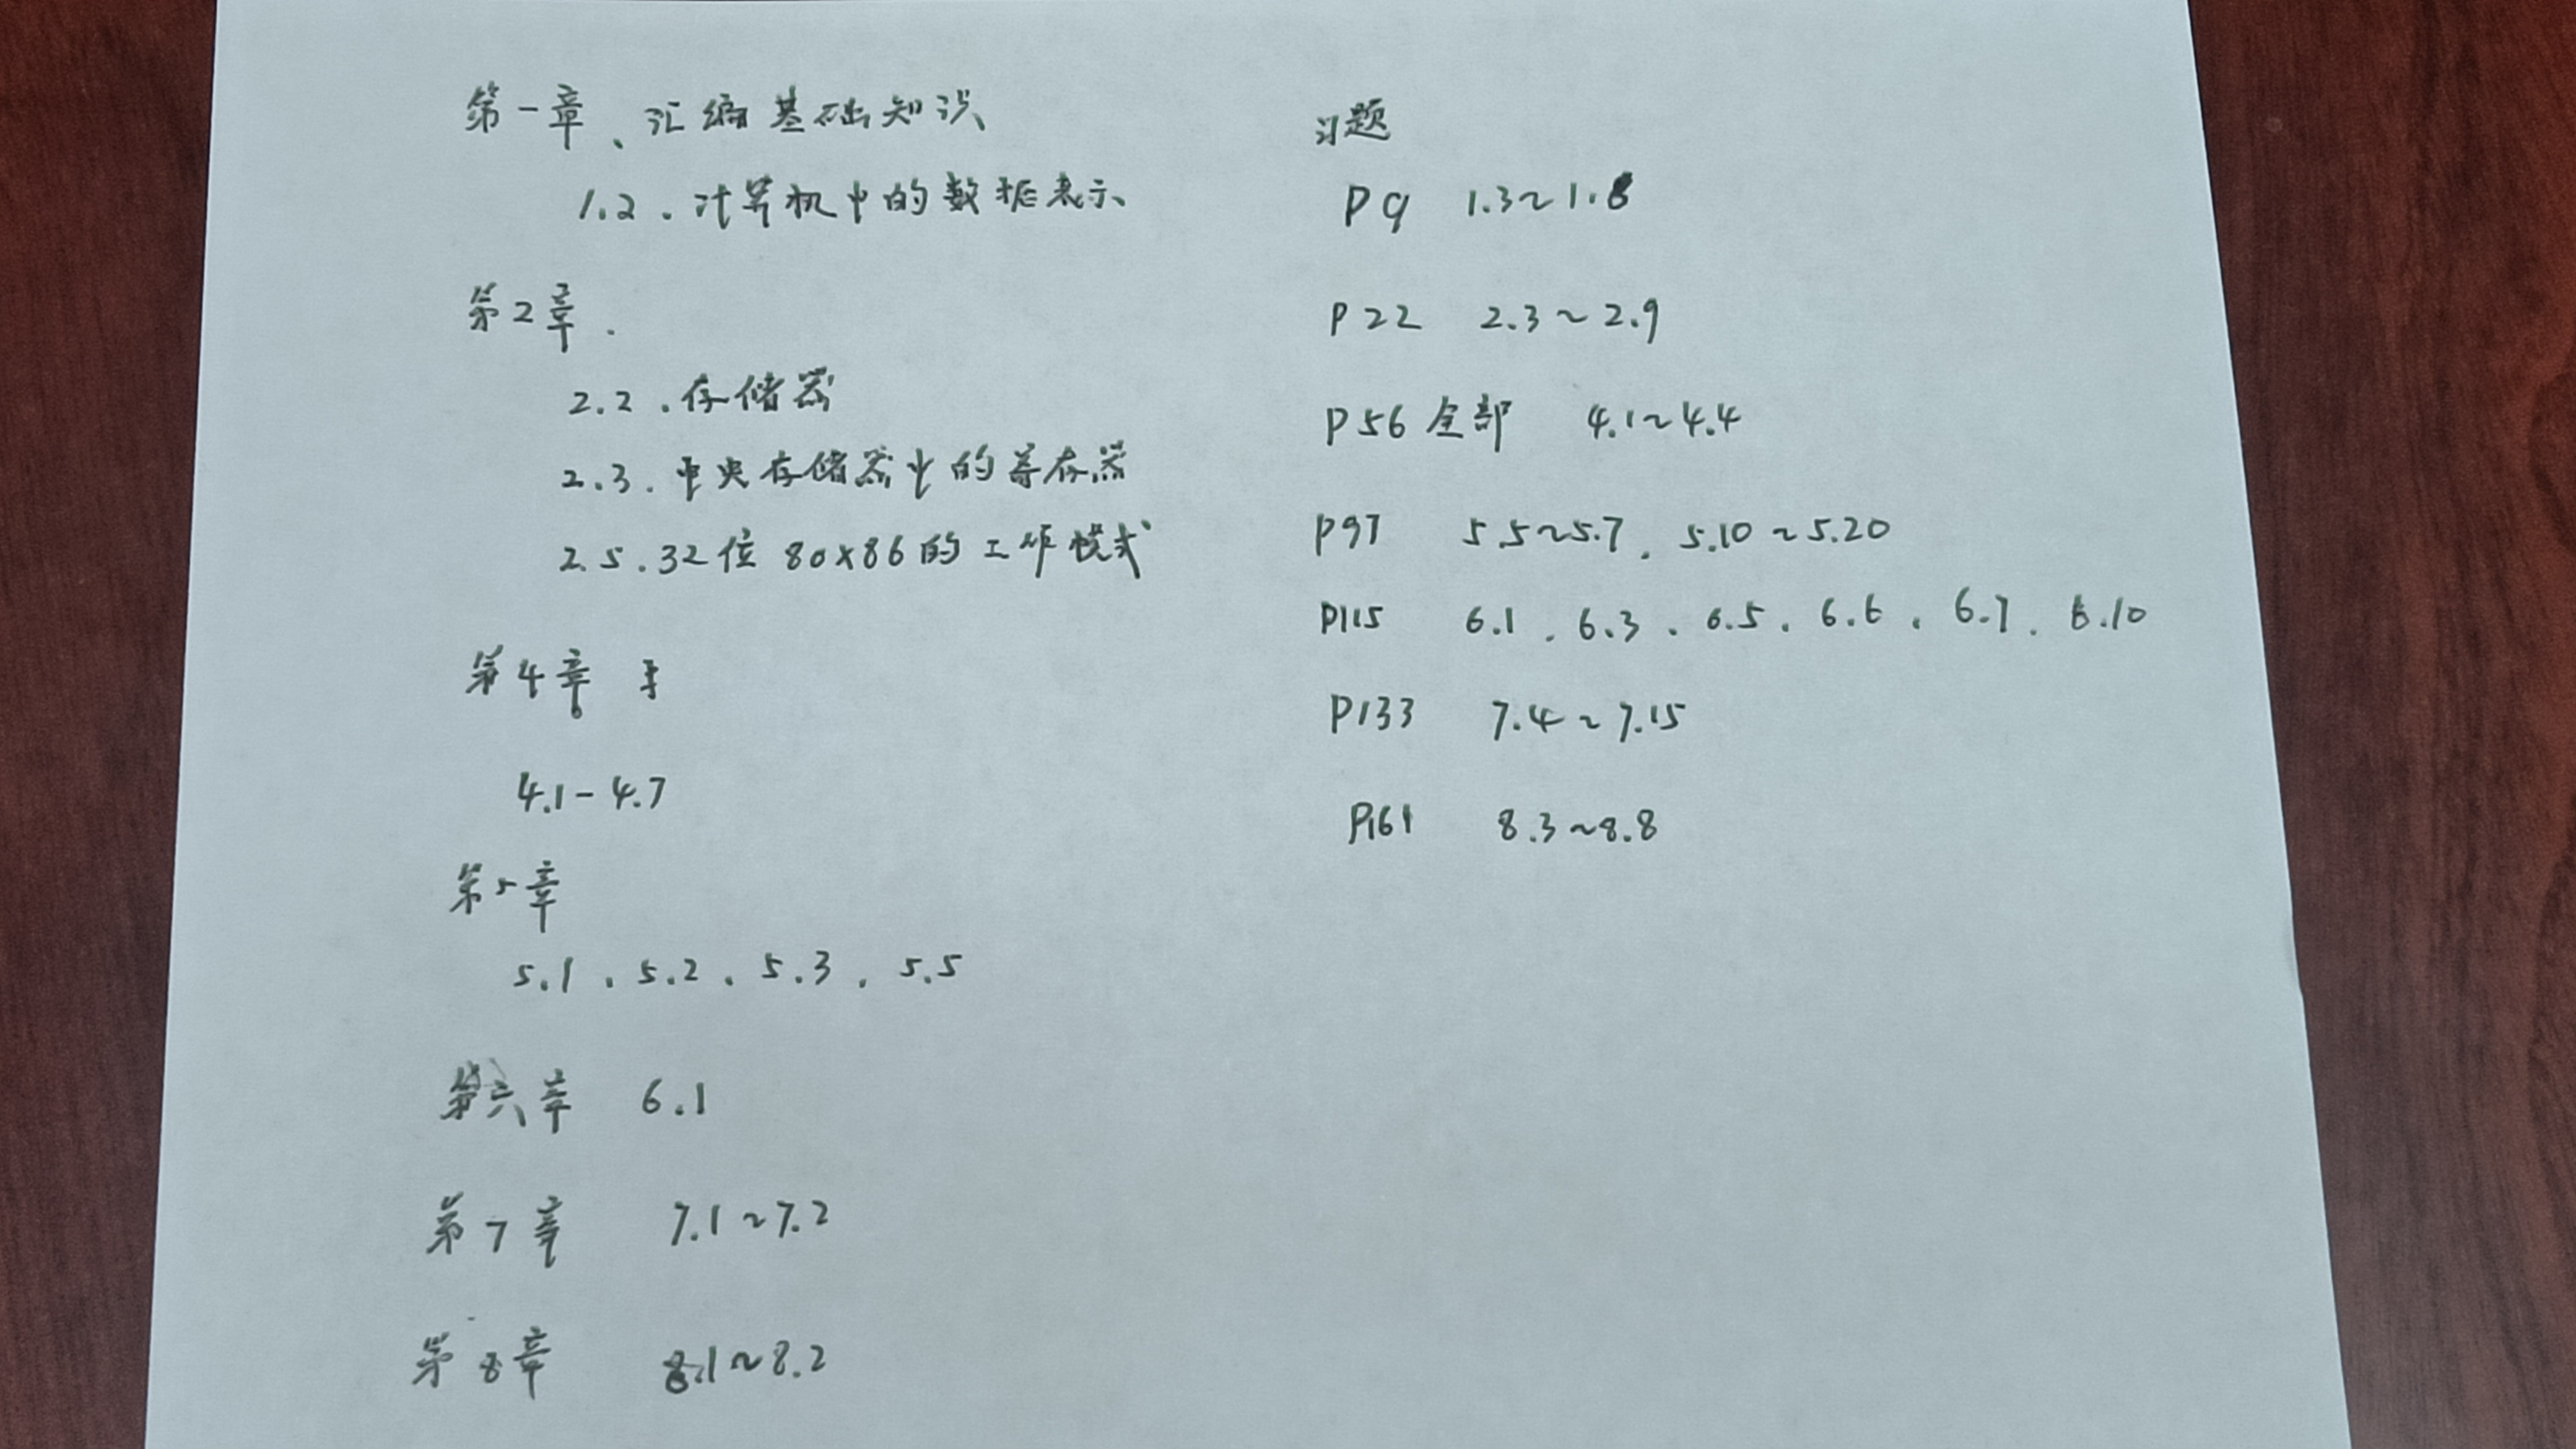 第一章、汇编基础知识
1.2.计算机中的数据表示
第2章.
2.2.存储器
2.3.中央存储器中的寄存器
2.5.32位80x86的工作模式
第4章
4.1-4.7
第5章
5.1、5.2、5.3、5.5
第六章 6.1
第7章 7.1~7.2
第8章 8.1~8.2
习题
P9 1.3~1.8
P22 2.3~2.9
P56全部 4.1~4.4
P97 5.5~5.7、5.10~5.20
P115 6.1、6.3、6.5、6.6、6.7、6.10
P133 7.4~7.15
P161 8.3~8.8